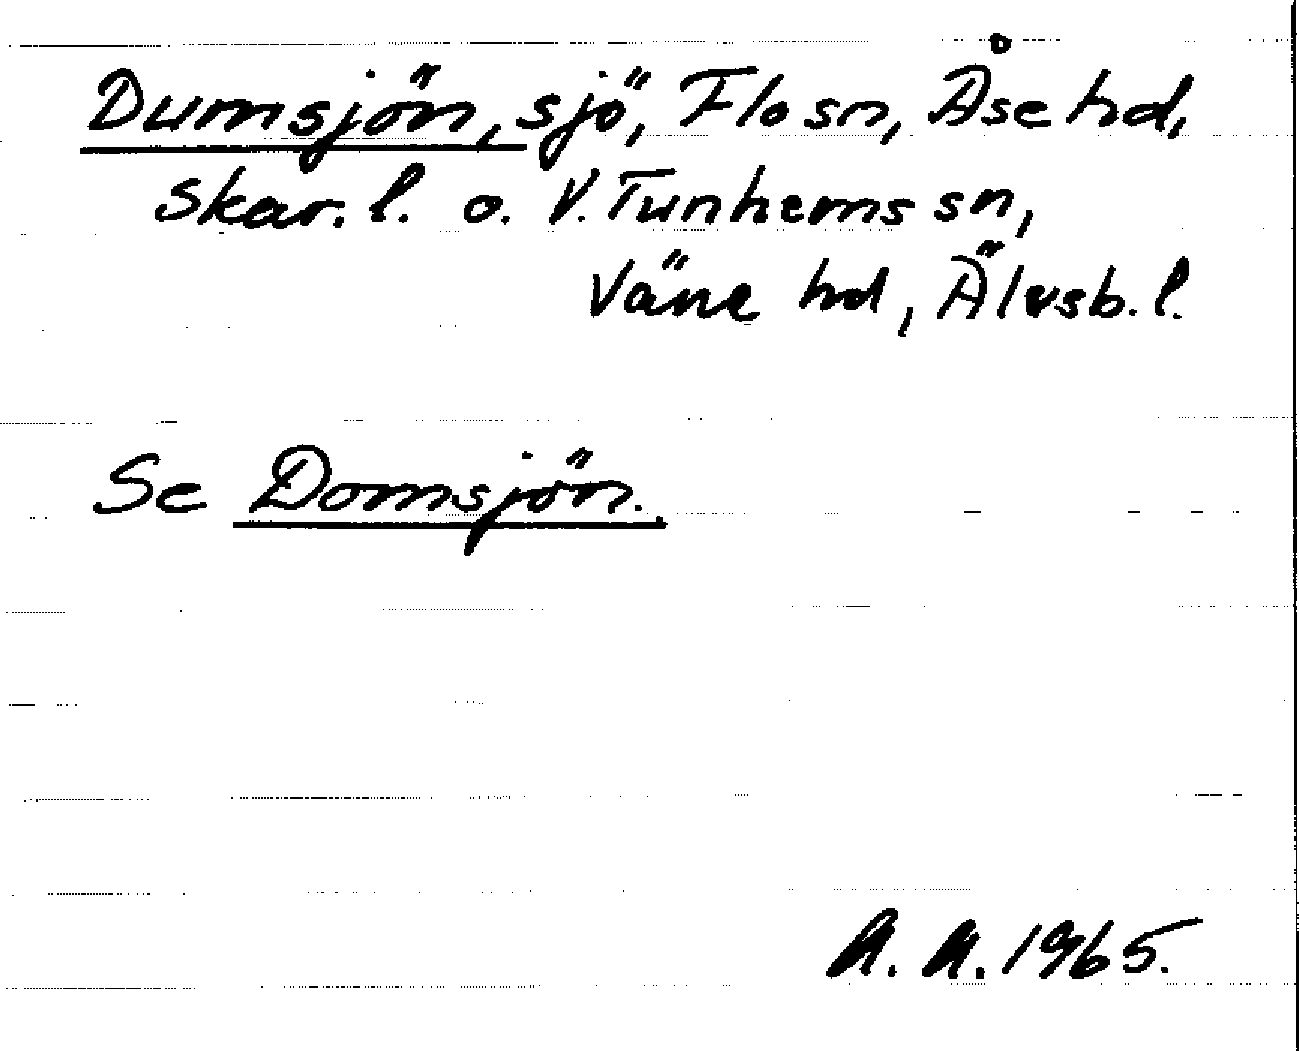 Dumsjön, sjö, Flo sn, Åse hd,
Skar. l. o. V. Tunhems sn,
Väne hd, Älvsb. l.
Se Domsjön.
A. A. 1965.